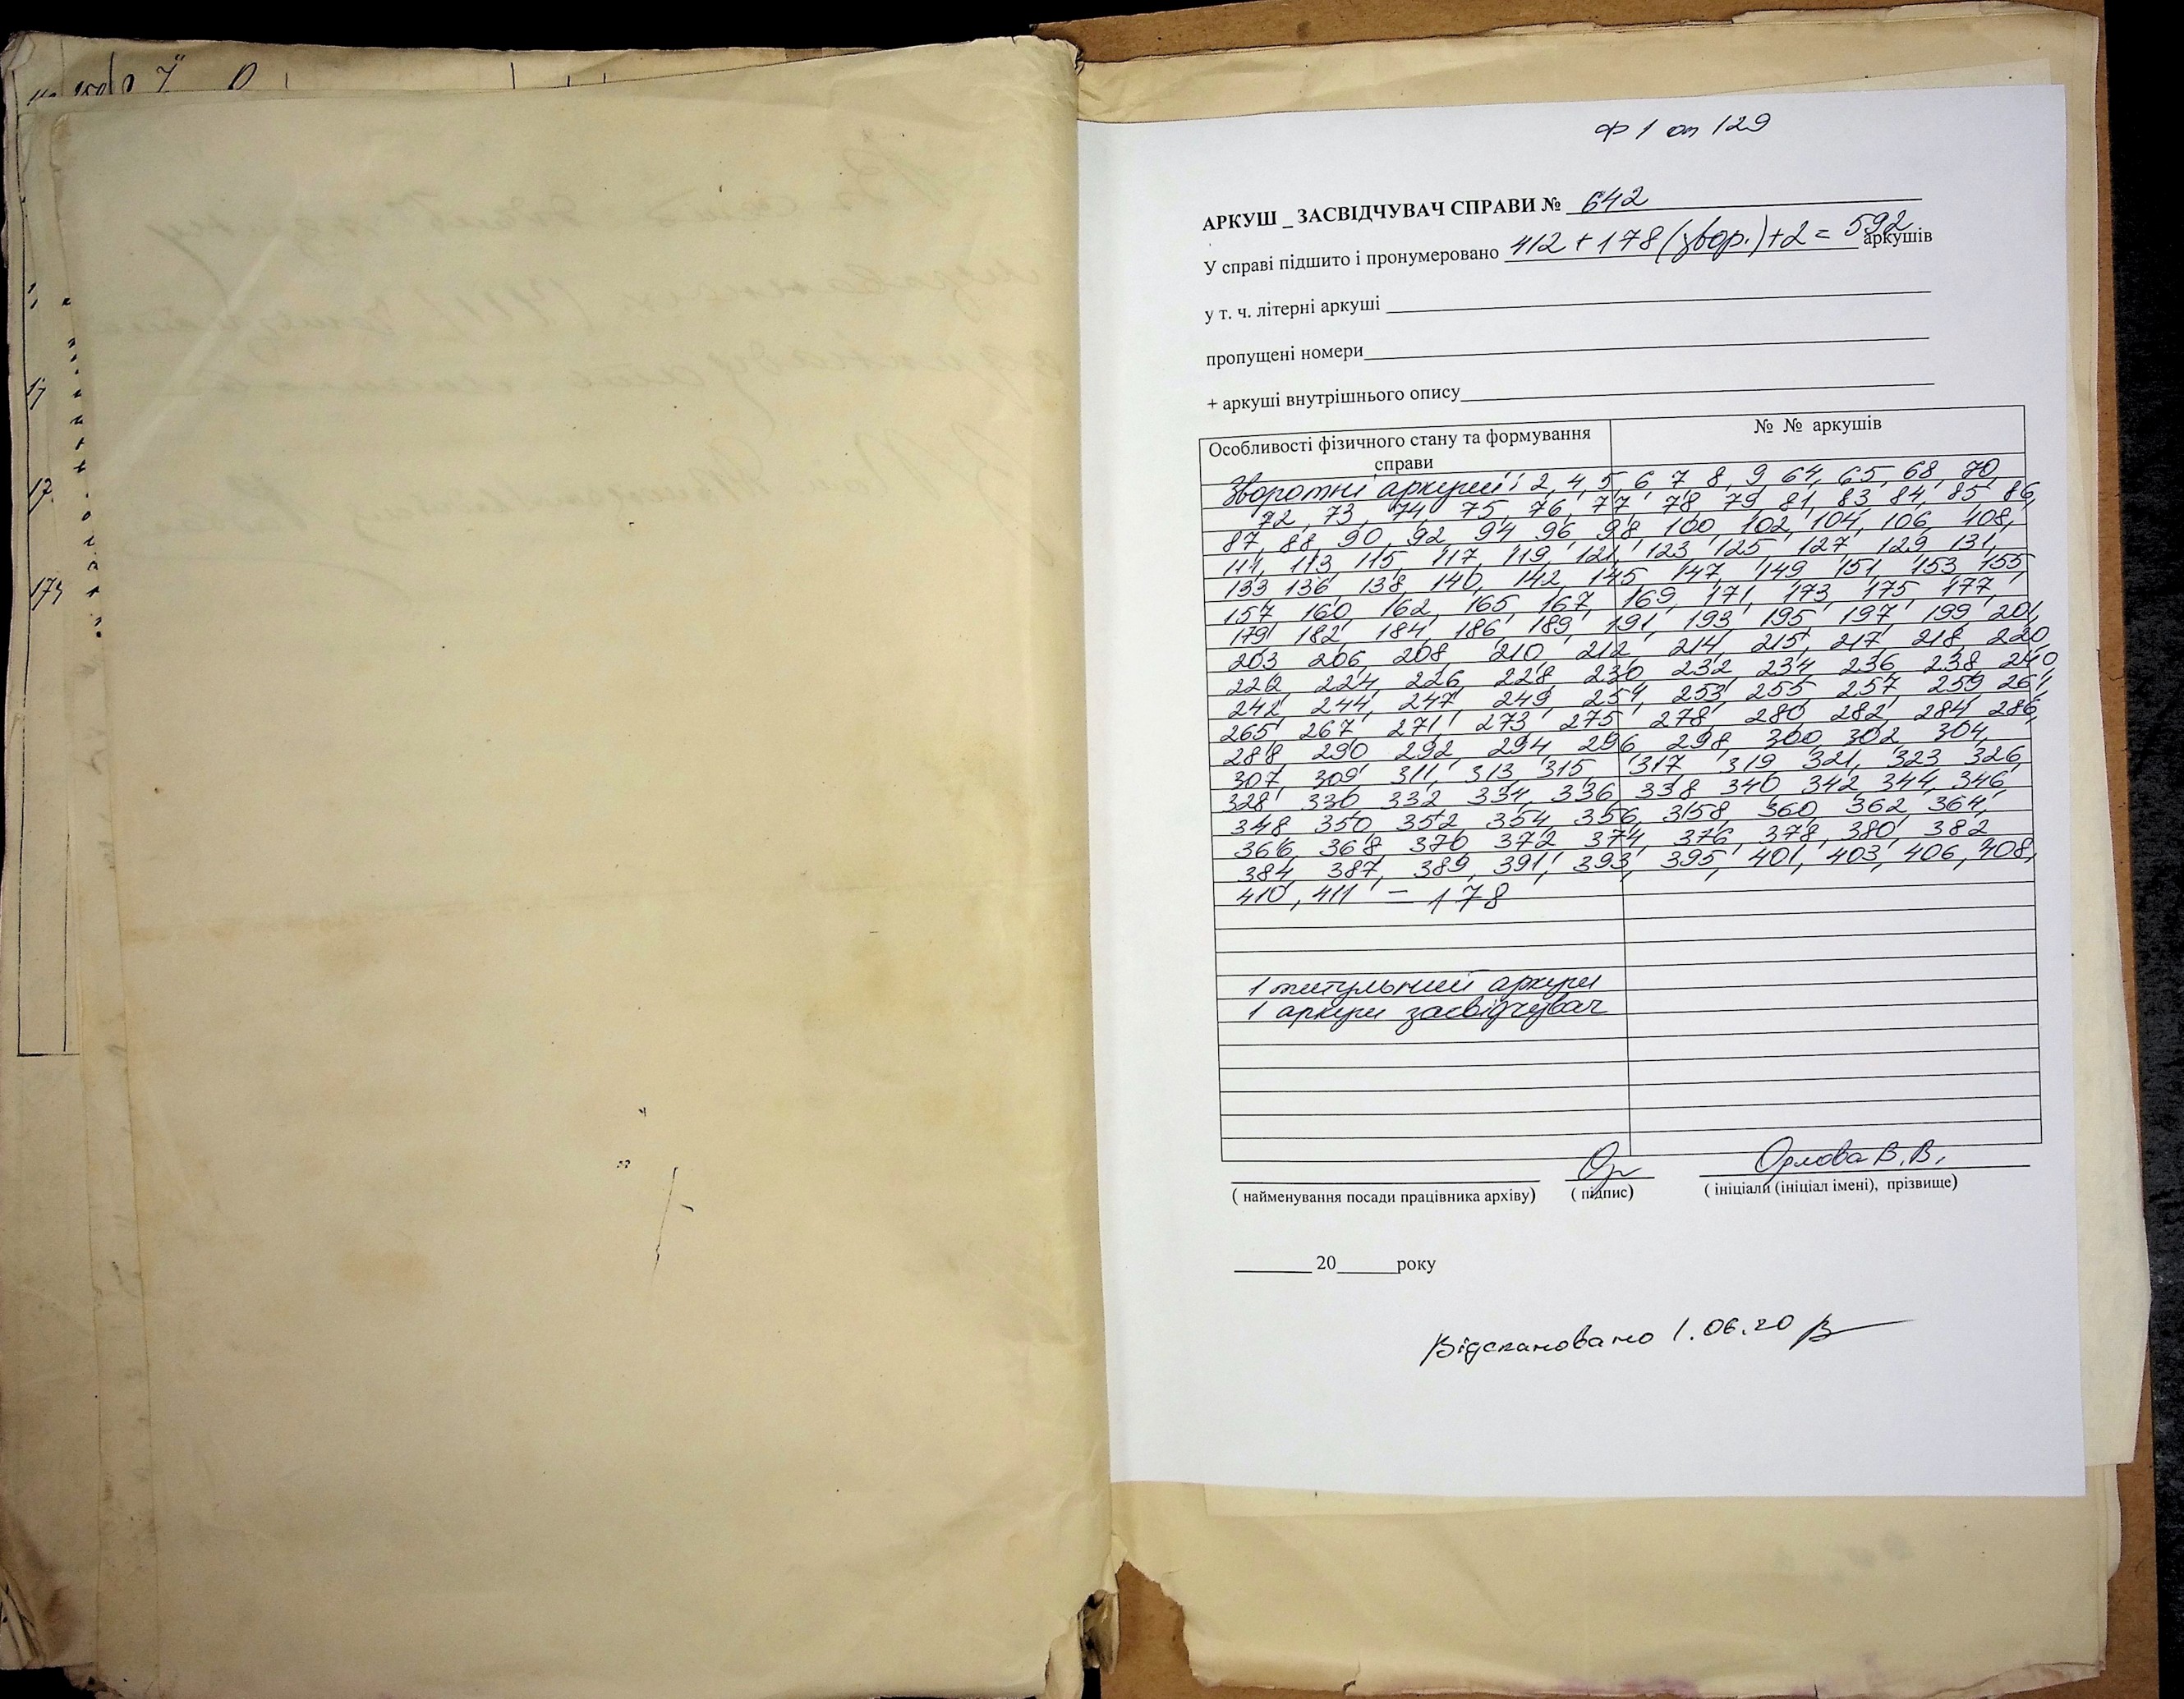 Ф 1 оп 129
АРКУШ _ ЗАСВІДЧУВАЧ СПРАВИ № 642
У справі підшито і пронумеровано 412 + 178 (звор.) + 2 = 592 аркушів
у т. ч. літерні аркуші
пропущені номери
+ аркуші внутрішнього опису
Особливості фізичного стану та формування справи
№ № аркушів
Зворотні аркуші: 2, 4, 5, 6, 7, 8, 9, 64, 65, 68, 70,
72, 73, 74, 75, 76, 77, 78, 79, 81, 83, 84, 85, 86,
87, 88, 90, 92, 94, 96, 98, 100, 102, 104, 106, 108,
111, 113, 115, 117, 119, 121, 123, 125, 127, 129, 131,
133, 136, 138, 140, 142, 145, 147, 149, 151, 153, 155,
157, 160, 162, 165, 167, 169, 171, 173, 175, 177,
179, 182, 184, 186, 189, 191, 193, 195, 197, 199, 201,
203, 206, 208, 210, 212, 214, 215, 217, 218, 220,
222, 224, 226, 228, 230, 232, 234, 236, 238, 240
242, 244, 247, 249, 251, 253, 255, 257, 259, 261,
265, 267, 271, 273, 275, 278, 280, 282, 284, 286,
288, 290, 292, 294, 296, 298, 300, 302, 304,
307, 309, 311, 313, 315, 317, 319, 321, 323, 326,
328, 330, 332, 334, 336, 338, 340, 342, 344, 346,
348, 350, 352, 354, 356, 358, 360, 362, 364,
366, 368, 370, 372, 374, 376, 378, 380, 382
384, 387, 389, 391, 393, 395, 401, 403, 406, 408,
410, 411 = 178
1 титульний аркуш
1 аркуш засвідчувач
Орлова В. В.
( найменування посади працівника архіву) ( підпис) ( ініціали (ініціал імені), прізвище)
20 року
Відскановано 1.06.20